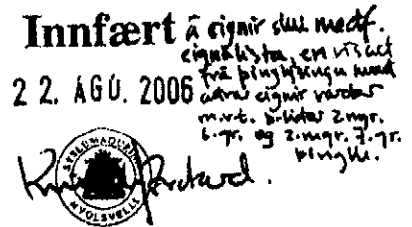 Innfært á eignir skv. medf.
eignalista, en vísað
frá þinglýsingu hvað
22. ÁGÚ. 2006 aðrar eignir varðar
m.v.t. b-liðar 2. mgr.
6. gr. og 2. mgr. 7. gr.
þingll.
SÝSLUMAÐURINN
HVOLSVELLI